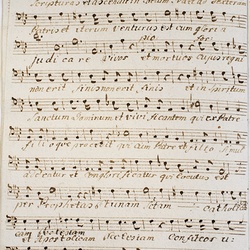 Scripturas et ascendit in Coelum
Patris et iterum venturus est cum gloria
Judicare vivos et mortuos cujus regni
non erit finis non erit finis et in Spiritum
Sanctum Dominum et vivificantem qui ex Patre
Filioque procedit qui cum Patre et Filio simul
adoratur et conglorificatur qui locutus est
per Prophetas et unam Sctam
Ecclesiam
et Apostolicam Ecclesiam Confiteor u